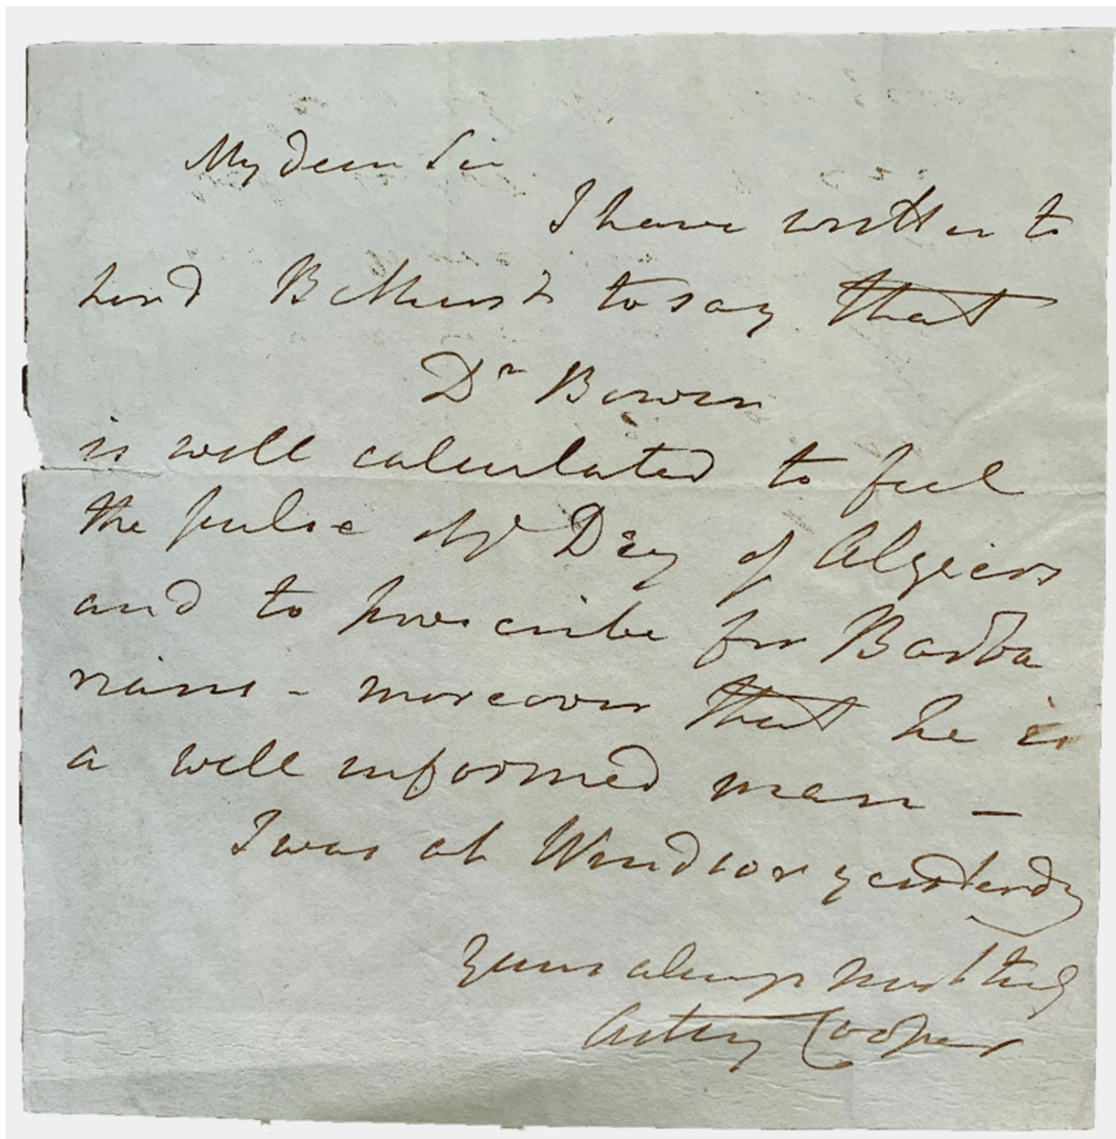 My dear Sir
I have written to
Lord Bathurst to say that
Dr Bowen
is well calculated to feel
the pulse of ye Dey of Algiers
and to prescribe for Barba
rians - moreover that he is
a well informed man -
I was at Windsor yesterday
Yours always most truly
Astley Cooper